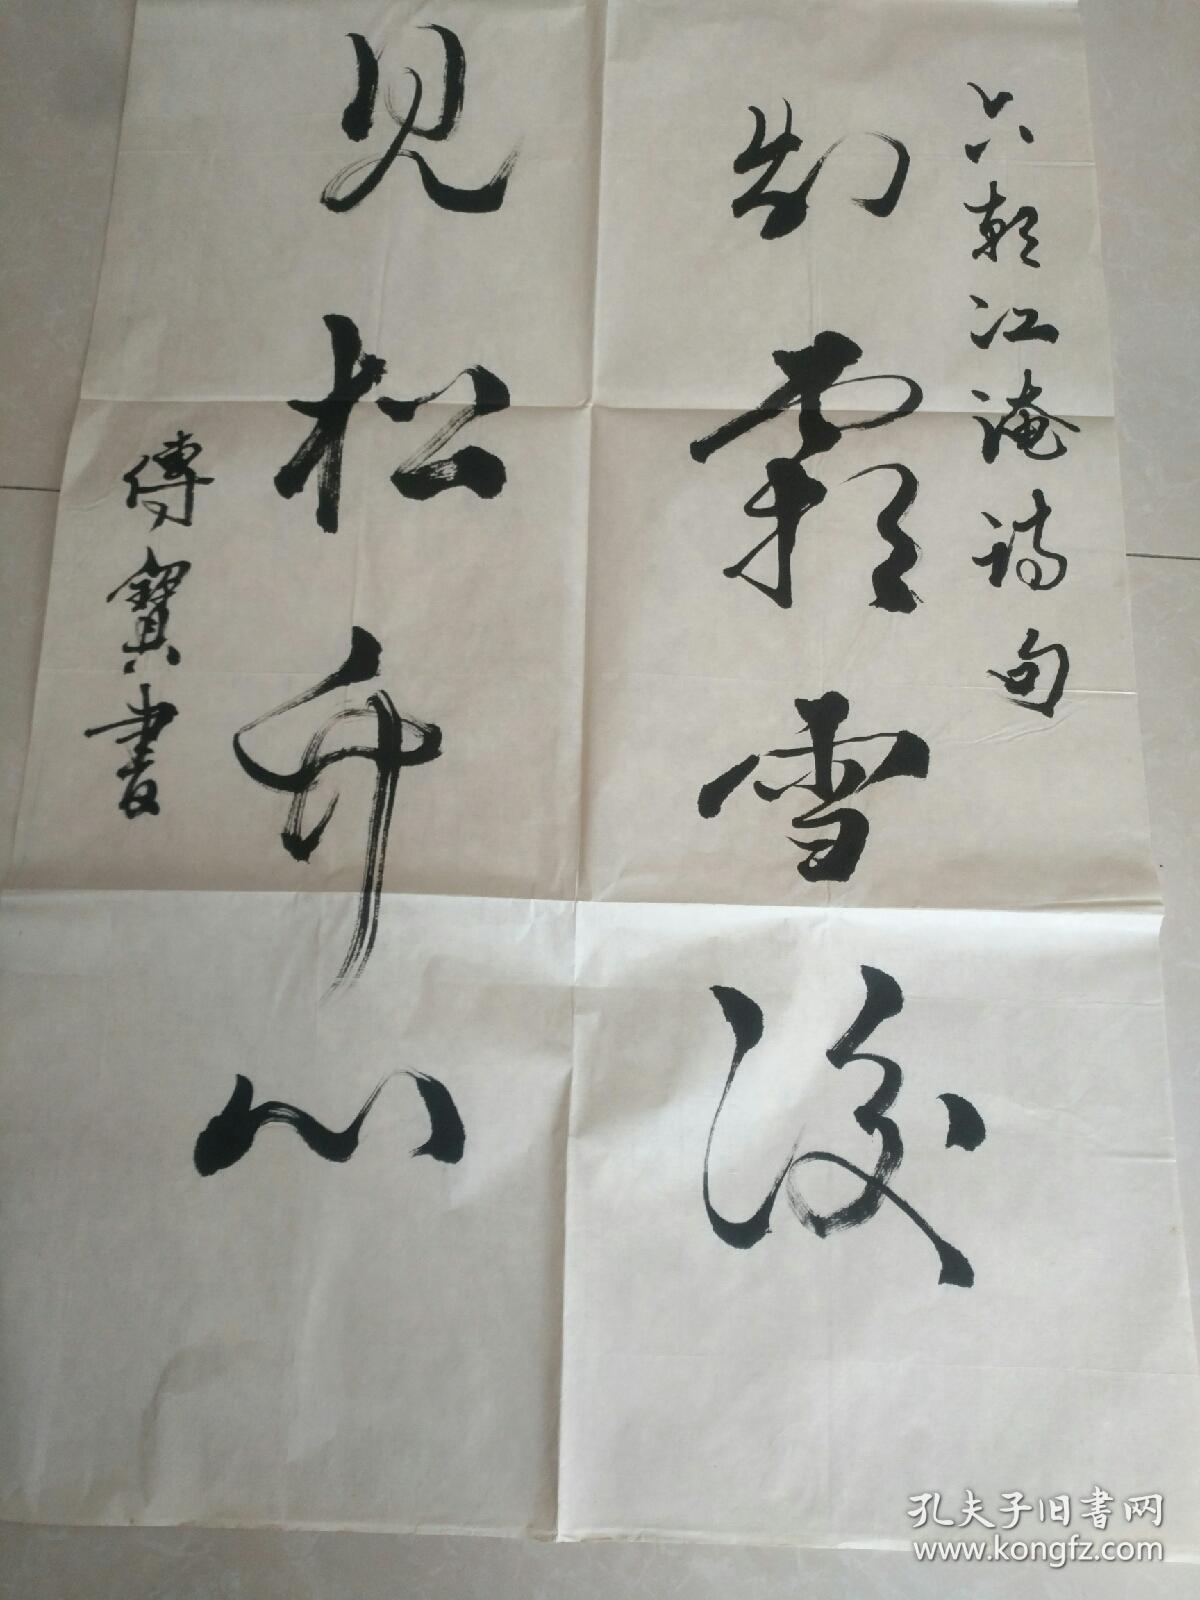 六朝江淹诗句
知霜雪後
见松竹心
傅寶書
孔夫子旧書网
www.kongfz.com